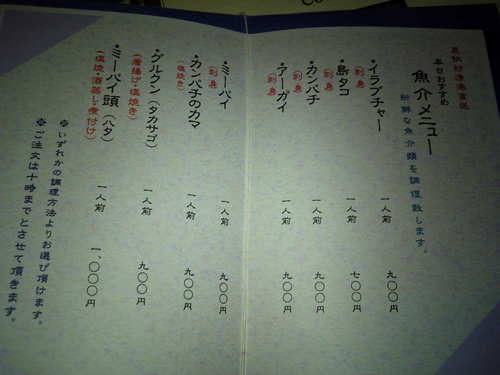 恩納村漁港直送
本日おすすめ
魚介メニュー
新鮮な魚介類を調理致します。
・イラブチャー (刺身) 一人前 九〇〇円
・島タコ (刺身) 一人前 七〇〇円
・カンパチ (刺身) 一人前 九〇〇円
・アーガイ (刺身) 一人前 九〇〇円
・ミーバイ (刺身) 一人前 九〇〇円
・カンパチのカマ (塩焼き) 一人前 九〇〇円
・グルクン(タカサゴ) (唐揚げ・塩焼き) 一人前 九〇〇円
・ミーバイ頭(ハタ) (塩焼・酒蒸し・煮付け) 一人前 一、〇〇〇円
※いずれかの調理方法よりお選び頂けます。
※ご注文は十時までとさせて頂きます。